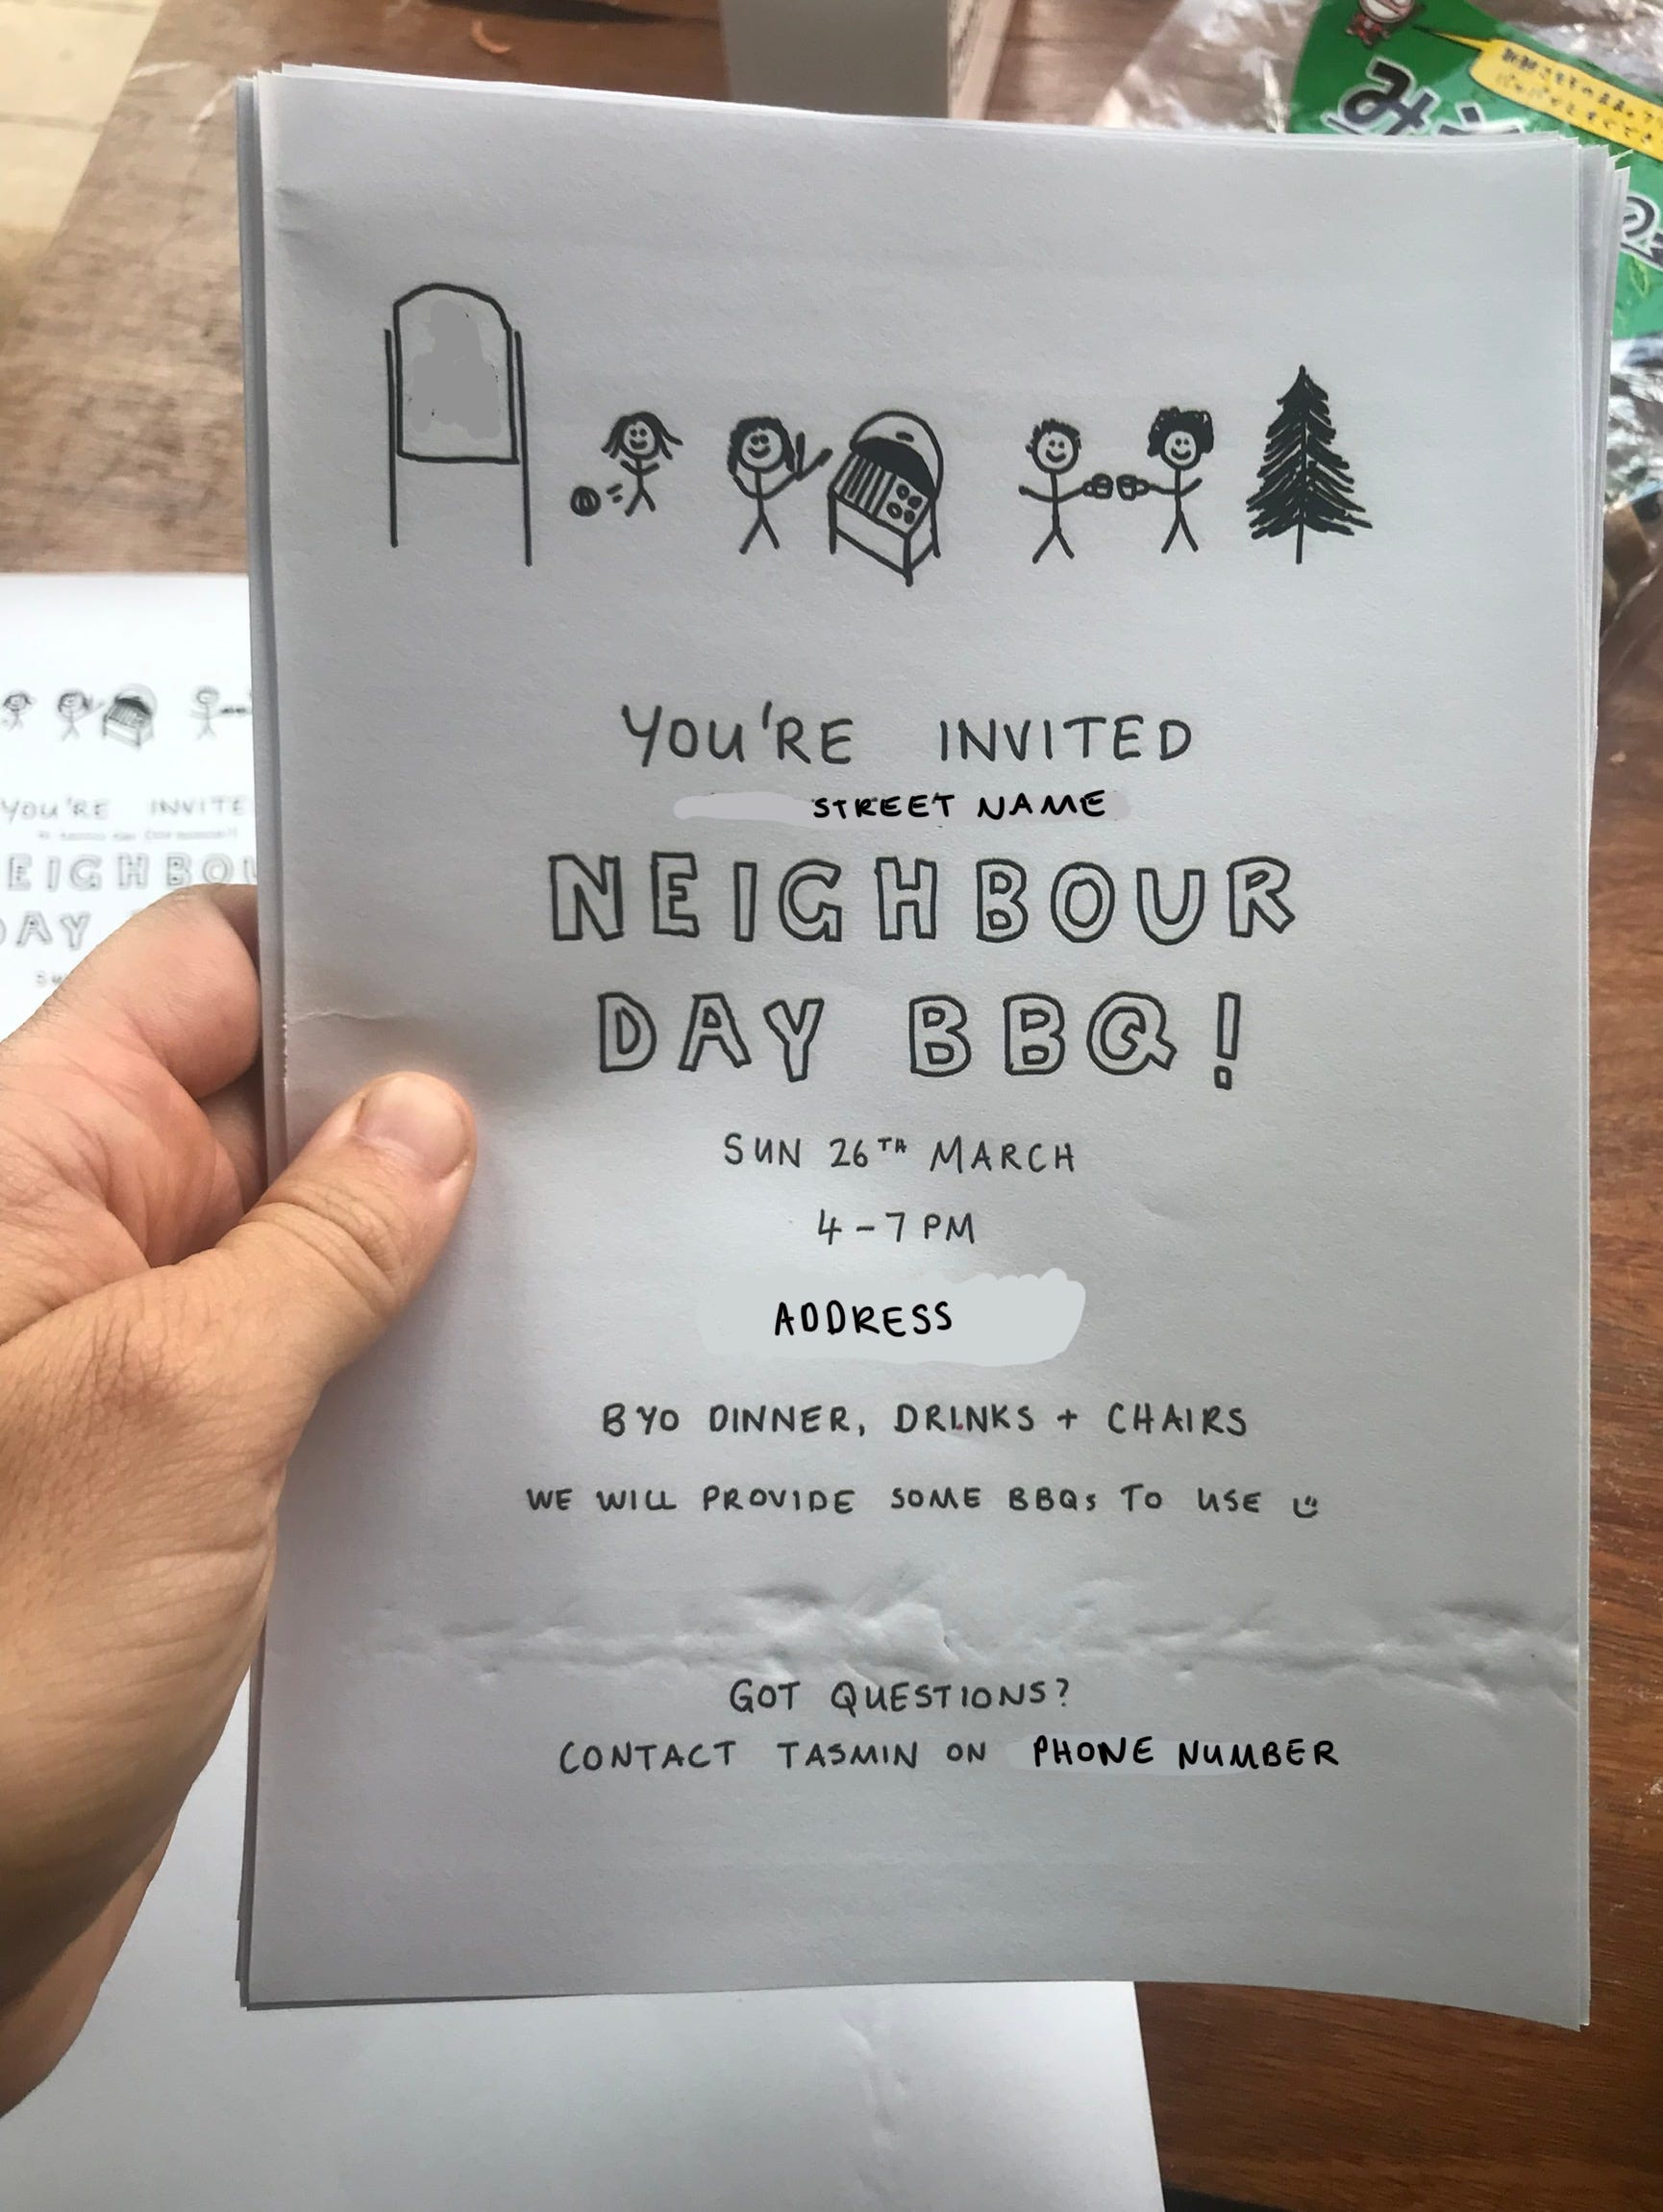 YOU'RE INVITED
STREET NAME
NEIGHBOUR
DAY BBQ!
SUN 26TH MARCH
4 - 7 PM
ADDRESS
BYO DINNER, DRINKS + CHAIRS
WE WILL PROVIDE SOME BBQs TO USE
GOT QUESTIONS?
CONTACT TASMIN ON PHONE NUMBER
YOU'RE INVITE
EIGHBOU
DAY
み